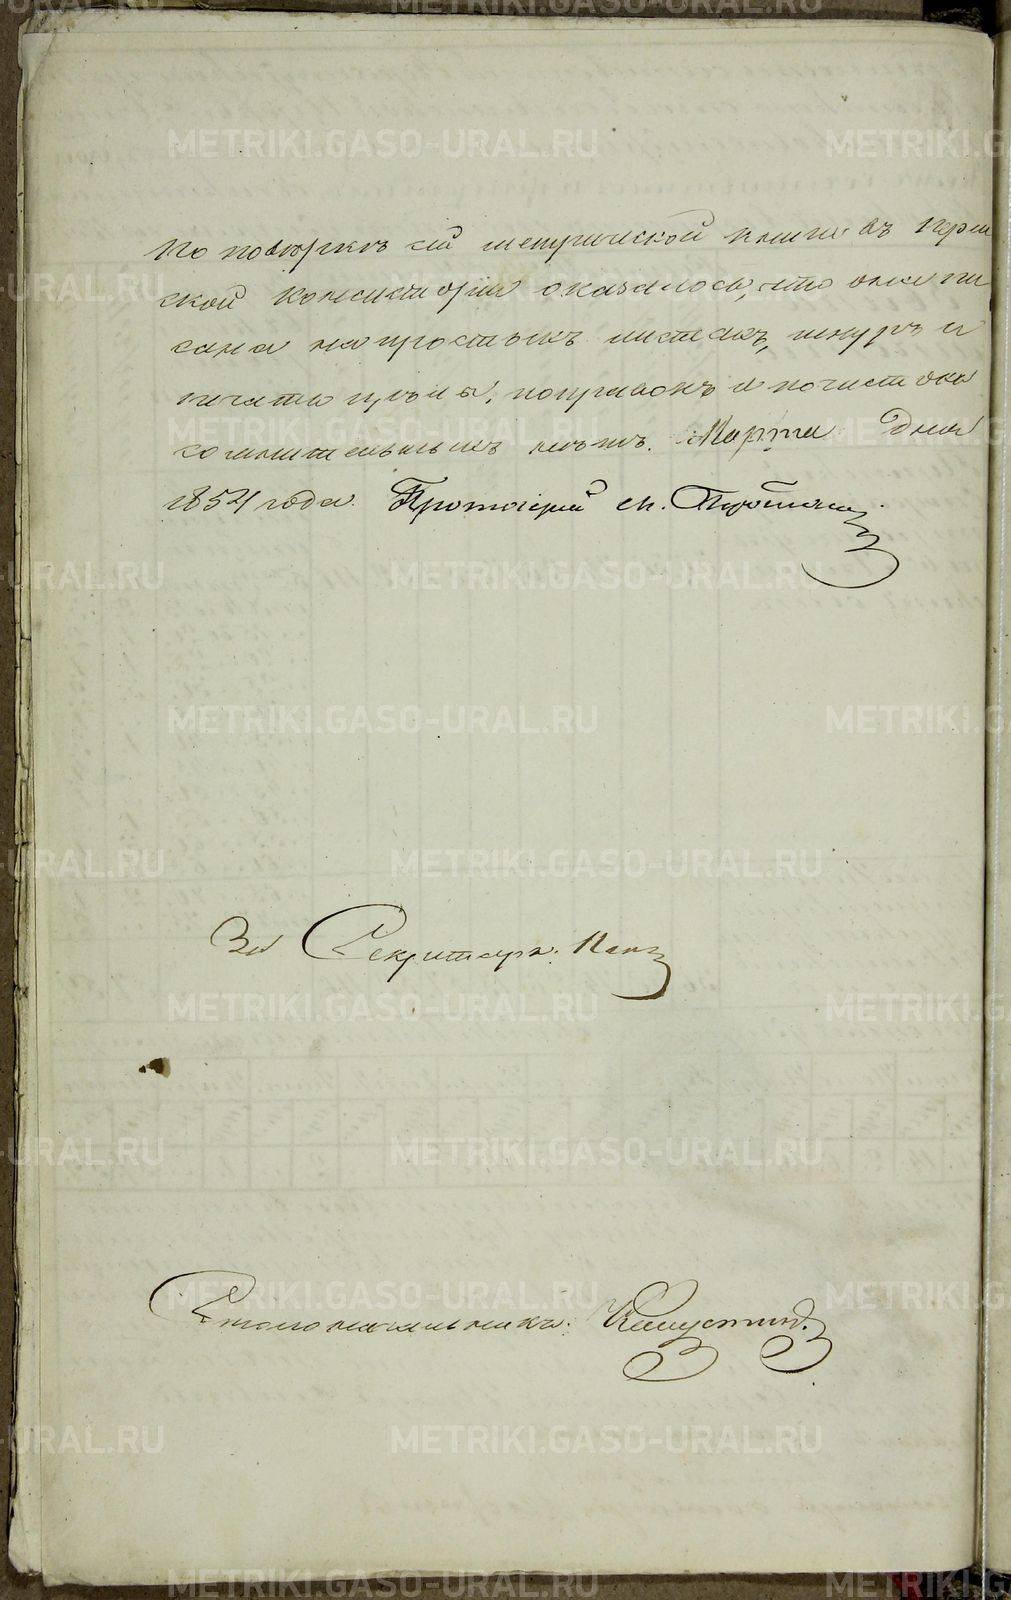 По повѣркѣ сей метрической книги въ Перм
ской Консисторіи оказалось, что она пи
сана на простыхъ листахъ, шнуръ и
печати цѣлы, поправокъ и почистокъ
сомнительныхъ нѣтъ. Марта дня
1854 года. Протоіерей
За Секретаря
Столоначальникъ Капустинъ
METRIKI.GASO-URAL.RU